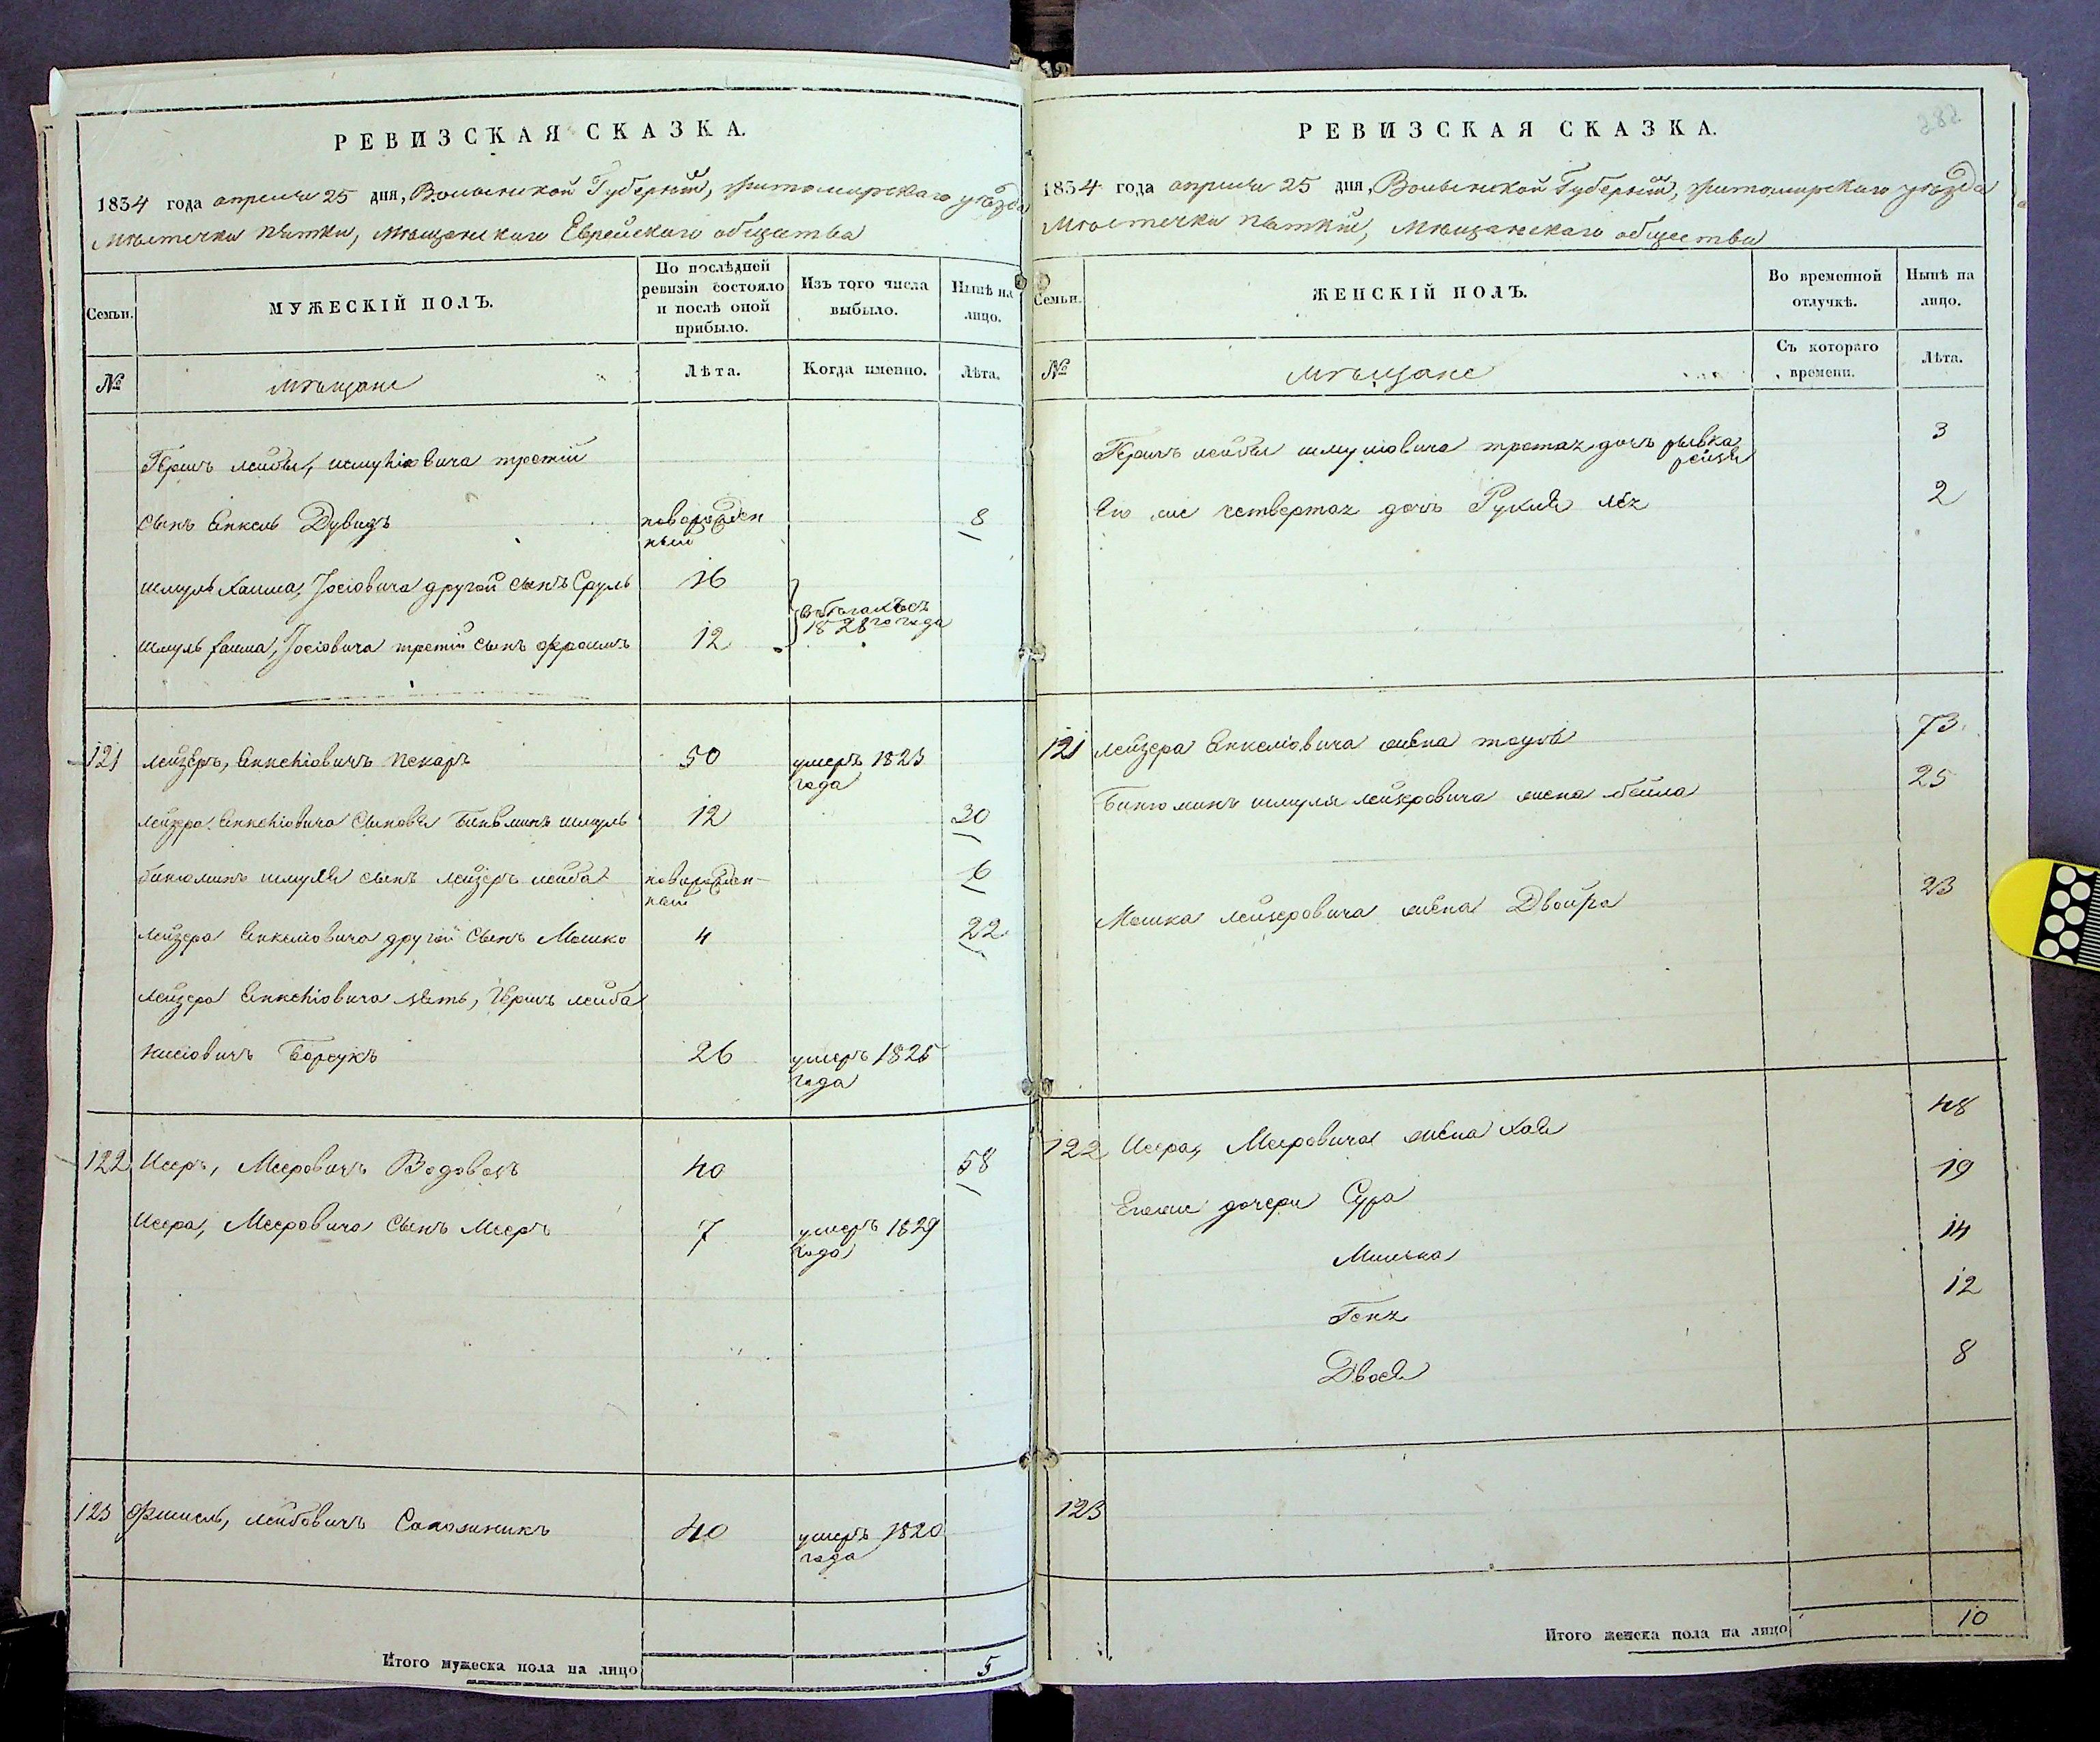 РЕВИЗСКАЯ СКАЗКА.
1834 года апреля 25 дня, Волынской Губернии, житомирского уезда
Местечка Пятки, мещанского Еврейского общества
Семьи.
МУЖЕСКІЙ ПОЛЪ.
По послѣдней ревизіи состояло и послѣ оной прибыло.
Изъ того числа выбыло.
Нынѣ на лицо.
№
мещане
Лѣта.
Когда именно.
Лѣта.
Гершъ лейбы, шмуліовича третій
сынъ Янкель Дувидъ новорожденный 8
шмуль хаима, Іосіовича другой сынъ Сруль 16
шмуль хаима, Іосіовича третій сынъ Фроимъ 12
въ бегахъ съ 1828го года
121 лейзеръ, Янкеліовичъ пекаръ 50 умеръ 1823 года
лейзера Янкеліовича сыновья Биньминъ шмуль 12 30
бинюминъ шмуля сынъ лейзеръ лейба новорожденный 6
лейзера Янкеліовича другой сынъ Мошко 4 22
лейзера Янкеліовича зять, Гершъ лейба
нисіовичъ Борсукъ 26 умеръ 1825 года
122 Исеръ, Мееровичъ Водовозъ 40 58
Исера, Мееровича сынъ Мееръ 7 умеръ 1829 года
123 Фишель, лейбовичъ 40 умеръ 1820 года
Итого мужеска пола на лицо 5
282
РЕВИЗСКАЯ СКАЗКА.
1834 года апреля 25 дня, Волынской Губернии, житомирского уезда
Местечки Пятки, мещанского общества
Семьи.
ЖЕНСКІЙ ПОЛЪ.
Во временной отлучкѣ.
Нынѣ на лицо.
№
мещане
Съ котораго времени.
Лѣта.
Гершъ лейбы шмуліовича третая дочь рывка рейзя 3
Его же четвертая дочь Рухля лея 2
121 лейзера Янкеліовича жена 73
Бинюминъ шмуля лейзеровича жена бейла 25
Мошка лейзеровича жена Двойра 23
122 Исера, Мееровича жена хая 48
Его же дочери Сура 19
Милька 14
Геня 12
Двося 8
123
Итого женска пола на лицо 10